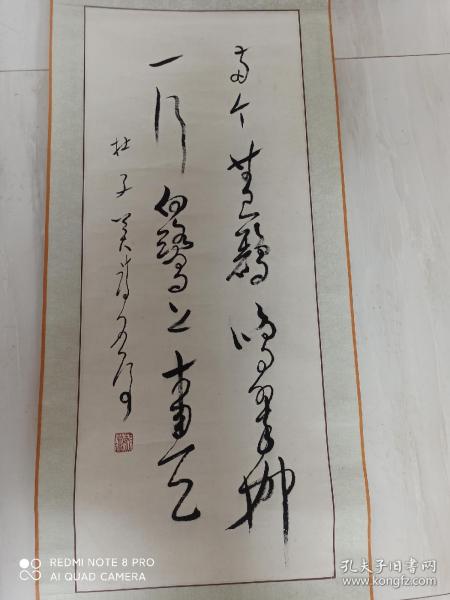 两个黄鹂鸣翠柳
一行白鹭上青天
杜子美诗
REDMI NOTE 8 PRO
AI QUAD CAMERA
孔夫子旧书网
www.kongfz.com